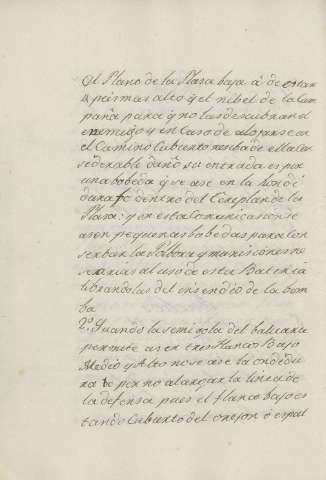 El Plano de la Plasa baja à de estar
8 pies mas alto q̃ el nibel de la Cam
paña para q̃ no las descubra el
enemigo y en Caso de alojarse en
el Camino Cubierto resiba de ella con
sederable daño su entrada es por
una bobeda q̃ se ase en la
dentro del Terraplan de la
Plasa: y en esta Comunicasion se
asen pequeñas bobedas para Con
serbar la Polbora y munisiones ne
sesarias al uso de esta Bateria
librandolas del insendio de la bom
ba
2º Quando la semi gola del baluarte
permite aser tres flancos Bajo
Medio y Alto no se ase la
por no alargar la linea de
la defensa pues el flanco bajo es
tando Cubierto del orejon ó espal